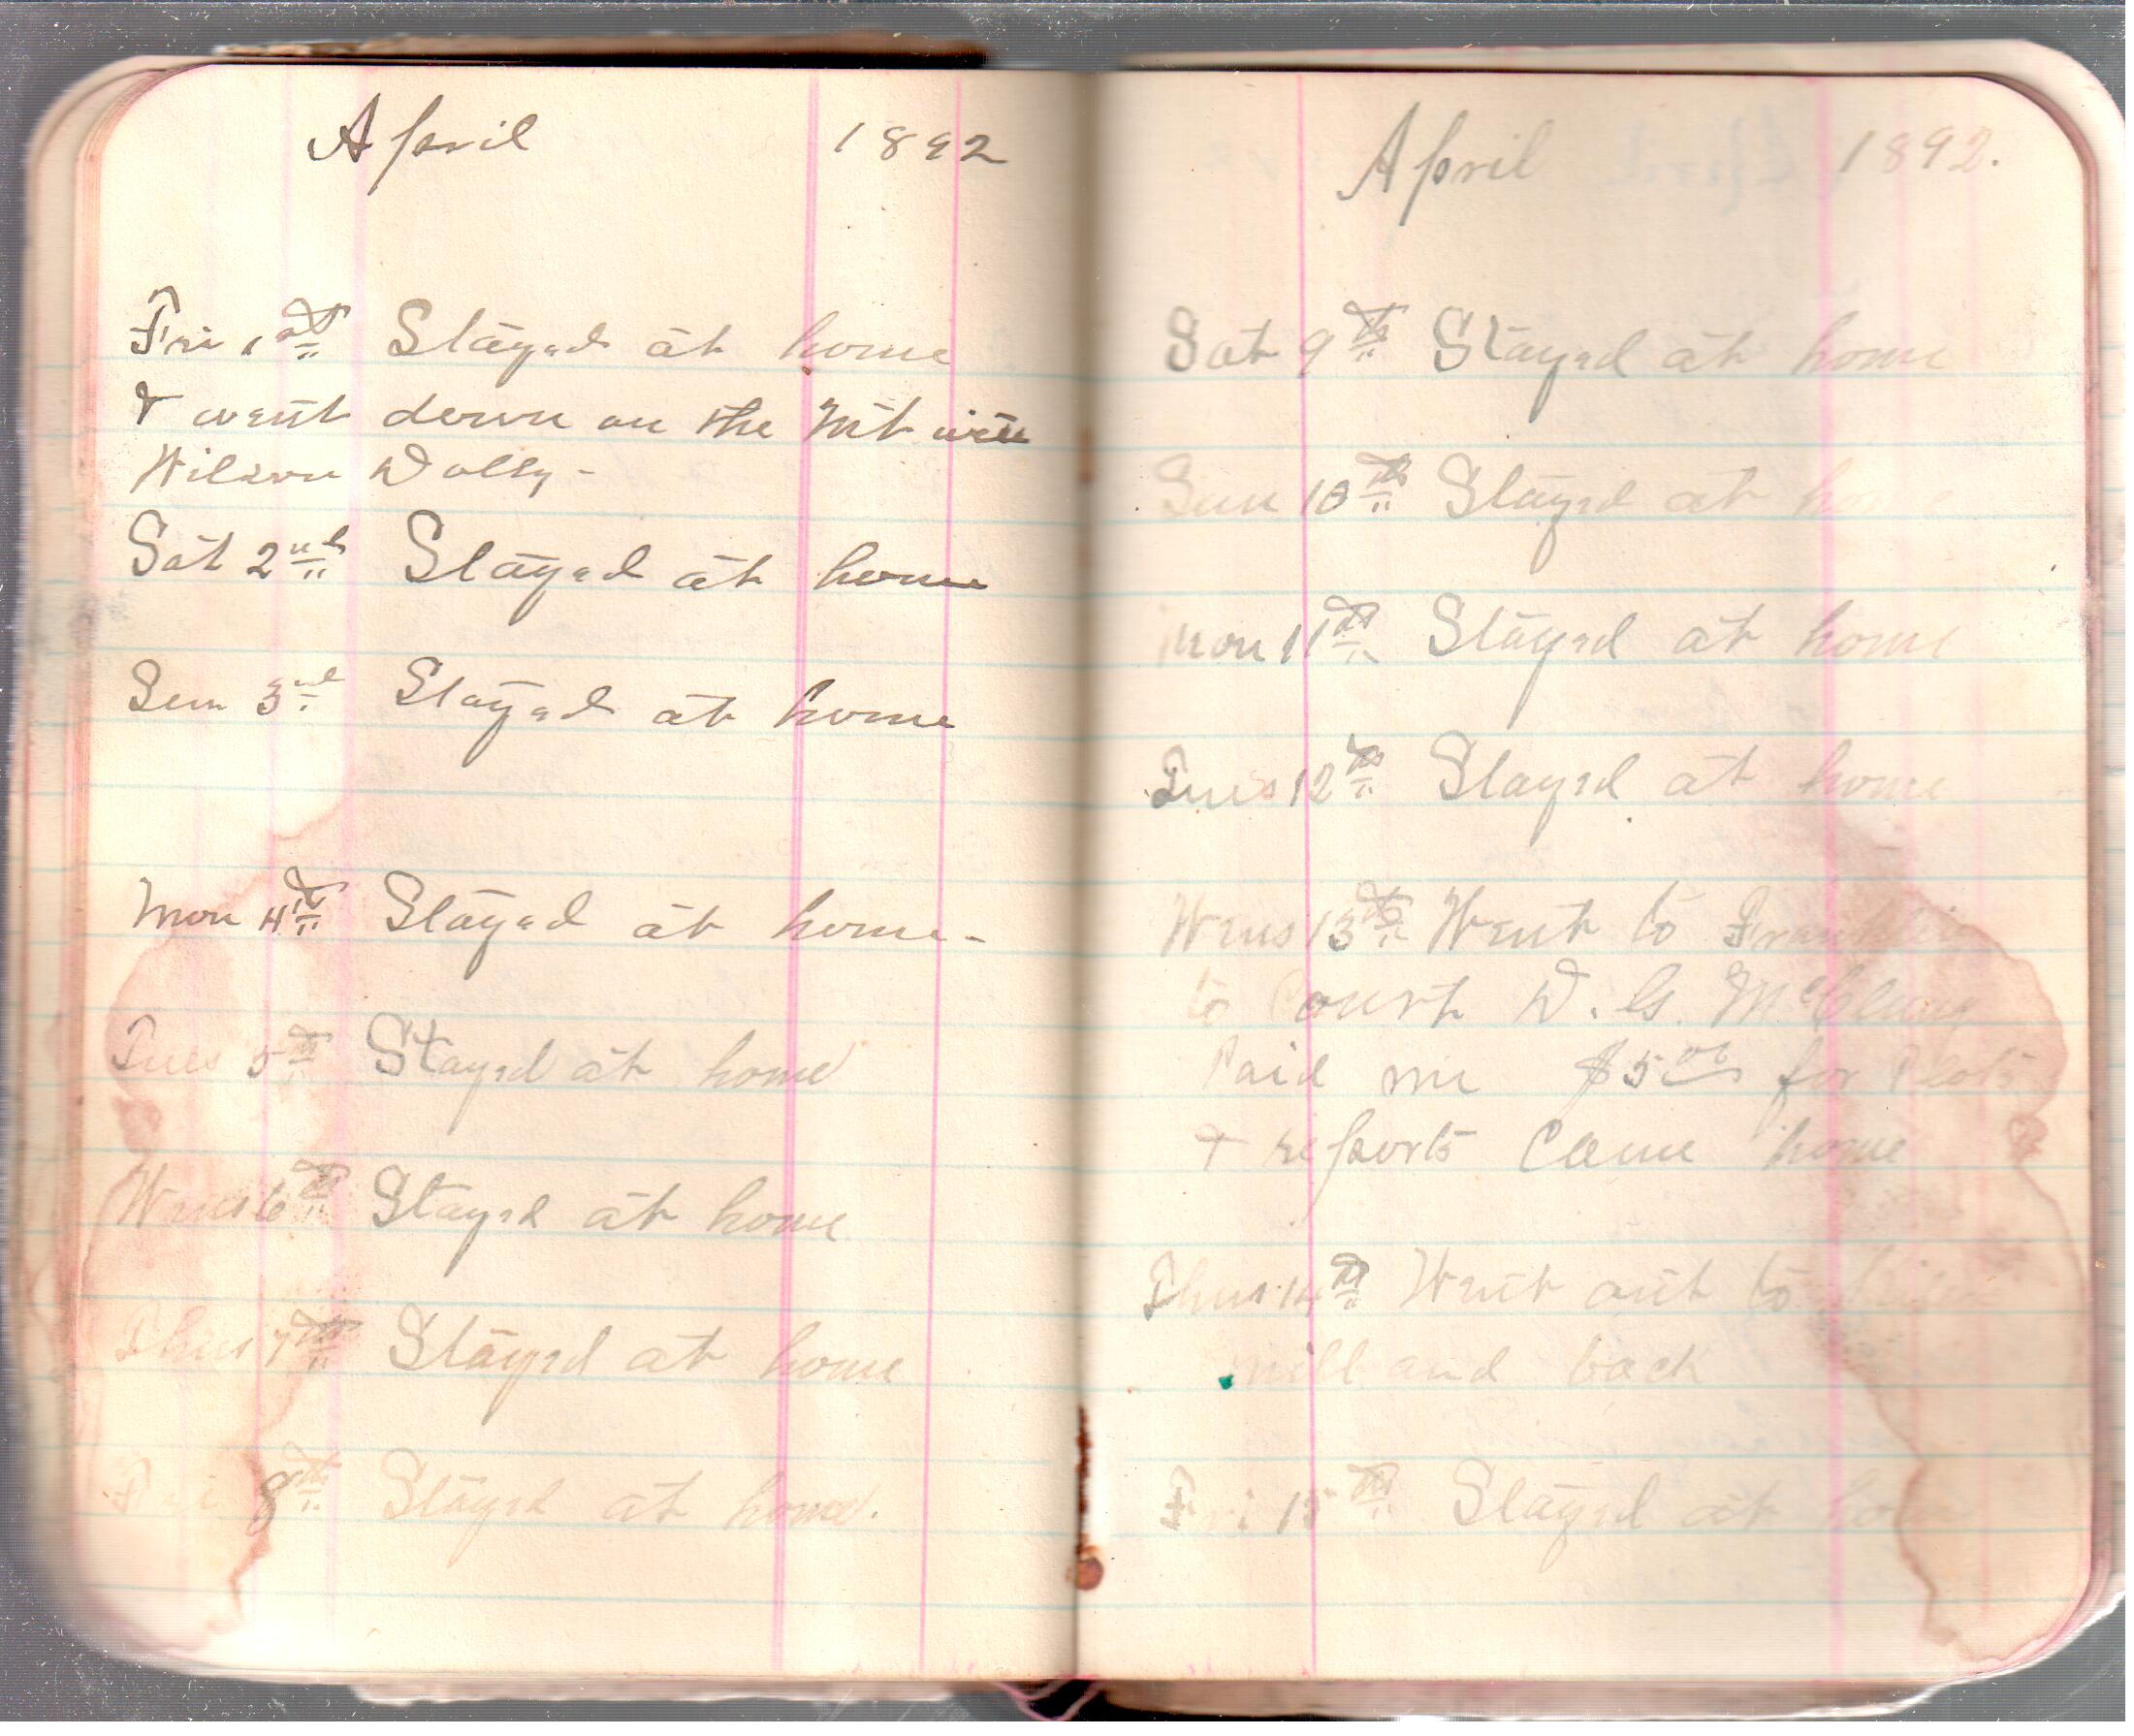 April 1892
Fri 1st Stayed at home
& went down on the Mt with
Wilson Dolly -
Sat 2nd Stayed at home
Sun 3rd Stayed at home
Mon 4th Stayed at home -
Tues 5th Stayed at home
Wens 6th Stayed at home
Thus 7th Stayed at home
Fri 8th Stayed at home.
April 1892.
Sat 9th Stayed at home
Sun 10th Stayed at home
Mon 11th Stayed at home
Tues 12th Stayed at home
Wens 13th Went to Franklin
to Court D. G. McClung
Paid me $5.00 for Plots
& reports Came home
Thus 14th Went out to
mill and back
Fri 15th Stayed at home